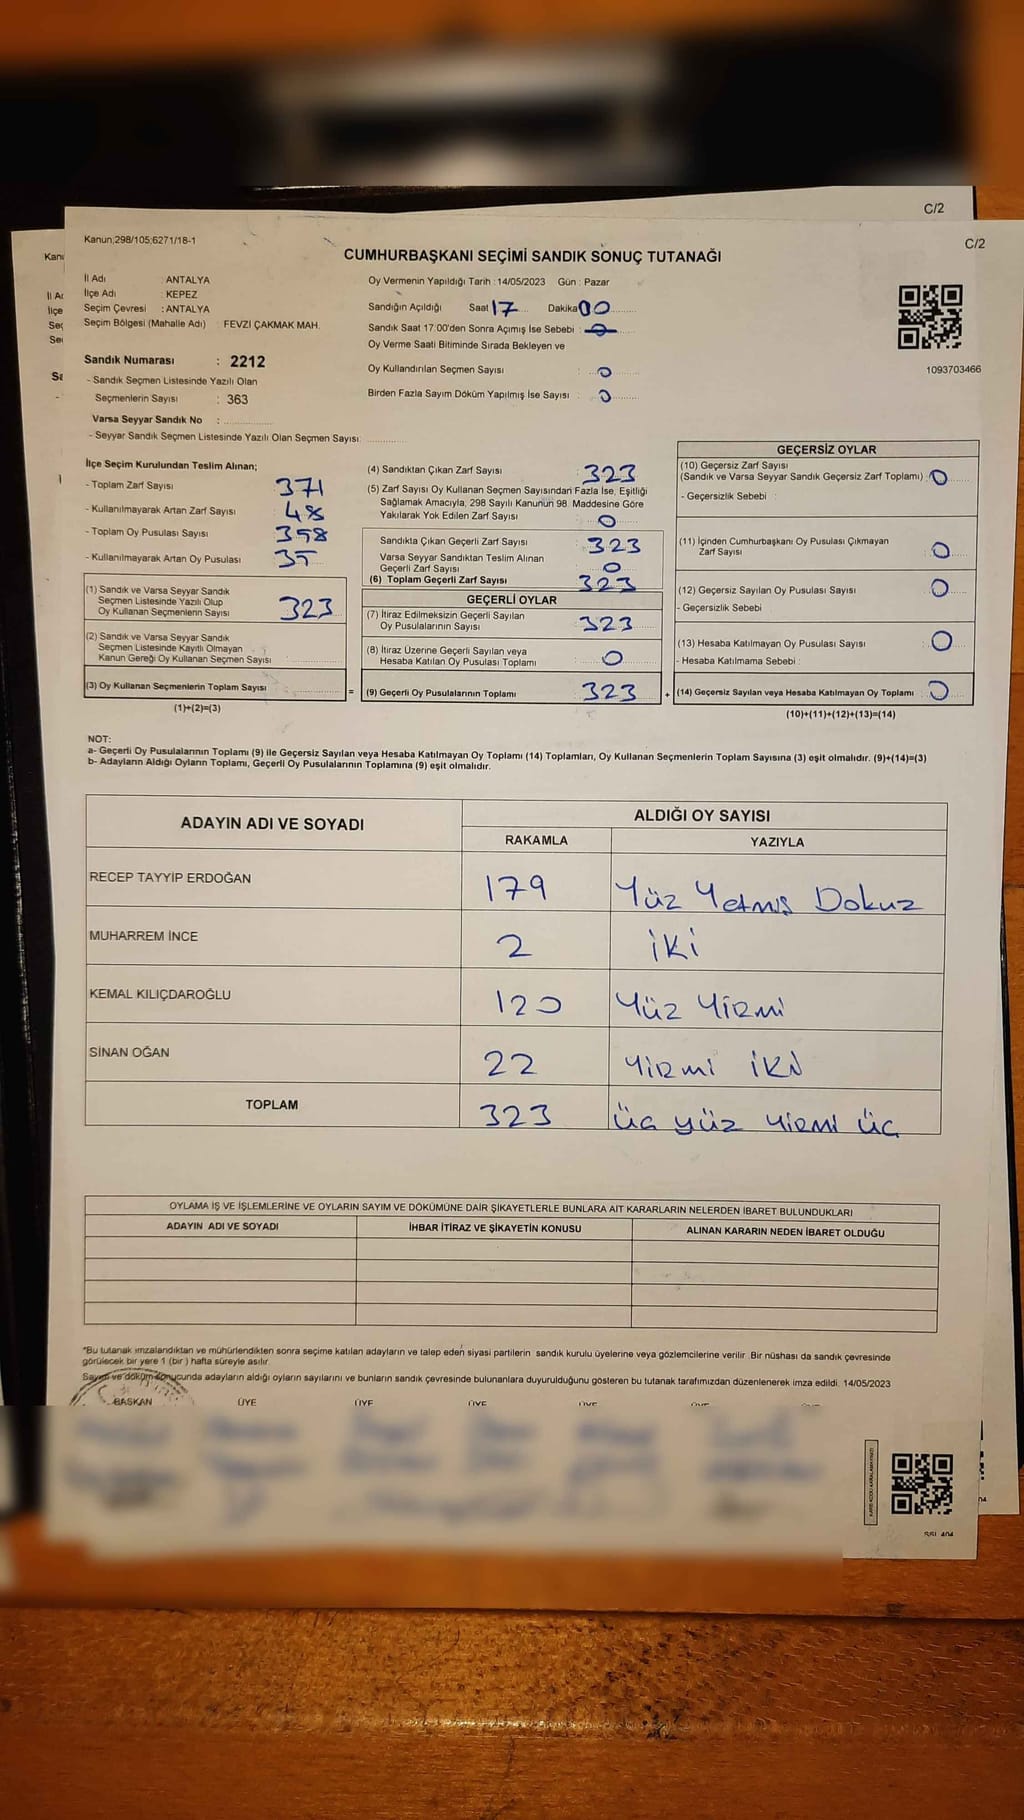 C/2
Kanun;298/105;6271/18-1
C/2
CUMHURBAŞKANI SEÇİMİ SANDIK SONUÇ TUTANAĞI
İl Adı : ANTALYA
İlçe Adı : KEPEZ
Seçim Çevresi : ANTALYA
Seçim Bölgesi (Mahalle Adı) : FEVZİ ÇAKMAK MAH.
Sandık Numarası : 2212
- Sandık Seçmen Listesinde Yazılı Olan
Seçmenlerin Sayısı : 363
Varsa Seyyar Sandık No :
- Seyyar Sandık Seçmen Listesinde Yazılı Olan Seçmen Sayısı:
Oy Vermenin Yapıldığı Tarih : 14/05/2023 Gün : Pazar
Sandığın Açıldığı Saat 17 Dakika 00
Sandık Saat 17:00'den Sonra Açımış İse Sebebi :
Oy Verme Saati Bitiminde Sırada Bekleyen ve
Oy Kullandırılan Seçmen Sayısı : 0
Birden Fazla Sayım Döküm Yapılmış İse Sayısı : 0
1093703466
İlçe Seçim Kurulundan Teslim Alınan;
- Toplam Zarf Sayısı 371
- Kullanılmayarak Artan Zarf Sayısı 48
- Toplam Oy Pusulası Sayısı 358
- Kullanılmayarak Artan Oy Pusulası 35
(1) Sandık ve Varsa Seyyar Sandık
Seçmen Listesinde Yazılı Olup
Oy Kullanan Seçmenlerin Sayısı 323
(2) Sandık ve Varsa Seyyar Sandık
Seçmen Listesinde Kayıtlı Olmayan
Kanun Gereği Oy Kullanan Seçmen Sayısı
(3) Oy Kullanan Seçmenlerin Toplam Sayısı =
(1)+(2)=(3)
(4) Sandıktan Çıkan Zarf Sayısı : 323
(5) Zarf Sayısı Oy Kullanan Seçmen Sayısından Fazla İse, Eşitliği
Sağlamak Amacıyla, 298 Sayılı Kanunun 98. Maddesine Göre
Yakılarak Yok Edilen Zarf Sayısı : 0
Sandıkta Çıkan Geçerli Zarf Sayısı : 323
Varsa Seyyar Sandıktan Teslim Alınan
Geçerli Zarf Sayısı : 0
(6) Toplam Geçerli Zarf Sayısı 323
GEÇERLİ OYLAR
(7) İtiraz Edilmeksizin Geçerli Sayılan
Oy Pusulalarının Sayısı : 323
(8) İtiraz Üzerine Geçerli Sayılan veya
Hesaba Katılan Oy Pusulası Toplamı : 0
(9) Geçerli Oy Pusulalarının Toplamı : 323 +
GEÇERSİZ OYLAR
(10) Geçersiz Zarf Sayısı
(Sandık ve Varsa Seyyar Sandık Geçersiz Zarf Toplamı) : 0
- Geçersizlik Sebebi :
(11) İçinden Cumhurbaşkanı Oy Pusulası Çıkmayan
Zarf Sayısı : 0
(12) Geçersiz Sayılan Oy Pusulası Sayısı : 0
- Geçersizlik Sebebi
(13) Hesaba Katılmayan Oy Pusulası Sayısı : 0
- Hesaba Katılmama Sebebi :
(14) Geçersiz Sayılan veya Hesaba Katılmayan Oy Toplamı : 0
(10)+(11)+(12)+(13)=(14)
NOT:
a- Geçerli Oy Pusulalarının Toplamı (9) ile Geçersiz Sayılan veya Hesaba Katılmayan Oy Toplamı (14) Toplamları, Oy Kullanan Seçmenlerin Toplam Sayısına (3) eşit olmalıdır. (9)+(14)=(3)
b- Adayların Aldığı Oyların Toplamı, Geçerli Oy Pusulalarının Toplamına (9) eşit olmalıdır.
ADAYIN ADI VE SOYADI ALDIĞI OY SAYISI
RAKAMLA YAZIYLA
RECEP TAYYİP ERDOĞAN 179 Yüz Yetmiş Dokuz
MUHARREM İNCE 2 İKİ
KEMAL KILIÇDAROĞLU 120 Yüz Yirmi
SİNAN OĞAN 22 Yirmi İKİ
TOPLAM 323 Üç yüz Yirmi Üç
OYLAMA İŞ VE İŞLEMLERİNE VE OYLARIN SAYIM VE DÖKÜMÜNE DAİR ŞİKAYETLERLE BUNLARA AİT KARARLARIN NELERDEN İBARET BULUNDUKLARI
ADAYIN ADI VE SOYADI İHBAR İTİRAZ VE ŞİKAYETİN KONUSU ALINAN KARARIN NEDEN İBARET OLDUĞU
*Bu tutanak imzalandıktan ve mühürlendikten sonra seçime katılan adayların ve talep eden siyasi partilerin sandık kurulu üyelerine veya gözlemcilerine verilir. Bir nüshası da sandık çevresinde
görülecek bir yere 1 (bir) hafta süreyle asılır.
Sayım ve döküm sonucunda adayların aldığı oyların sayılarını ve bunların sandık çevresinde bulunanlara duyurulduğunu gösteren bu tutanak tarafımızdan düzenlenerek imza edildi. 14/05/2023
BAŞKAN ÜYE ÜYE ÜYE ÜYE ÜYE